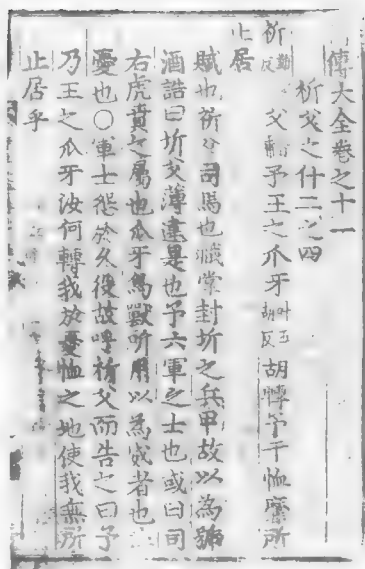 傳大全卷之十一
祈父之什二之四
祈勤反父甫音予王之爪牙叶五胡反胡轉予于恤靡所
止居
賦也祈父司馬也職掌封圻之兵甲故以為號
酒誥曰圻父薄違是也予六軍之士也或曰司
右虎賁之屬也爪牙鳥獸所用以為威者也
憂也○軍士怨於久役故呼祈父而告之曰予
乃王之爪牙汝何轉我於憂恤之地使我無所
止居乎